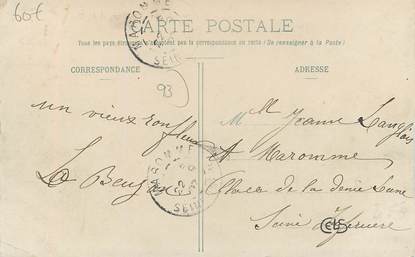 60€
CARTE POSTALE
Tous les pays étrangers n'acceptent pas la correspondance au recto (Se renseigner à la Poste)
CORRESPONDANCE
ADRESSE
MAROMME
SEINE
93
un vieux ronfleur
Mell Jeanne Langlois
A Maromme
Place de la demie Lune
Seine Inférieure
MAROMME